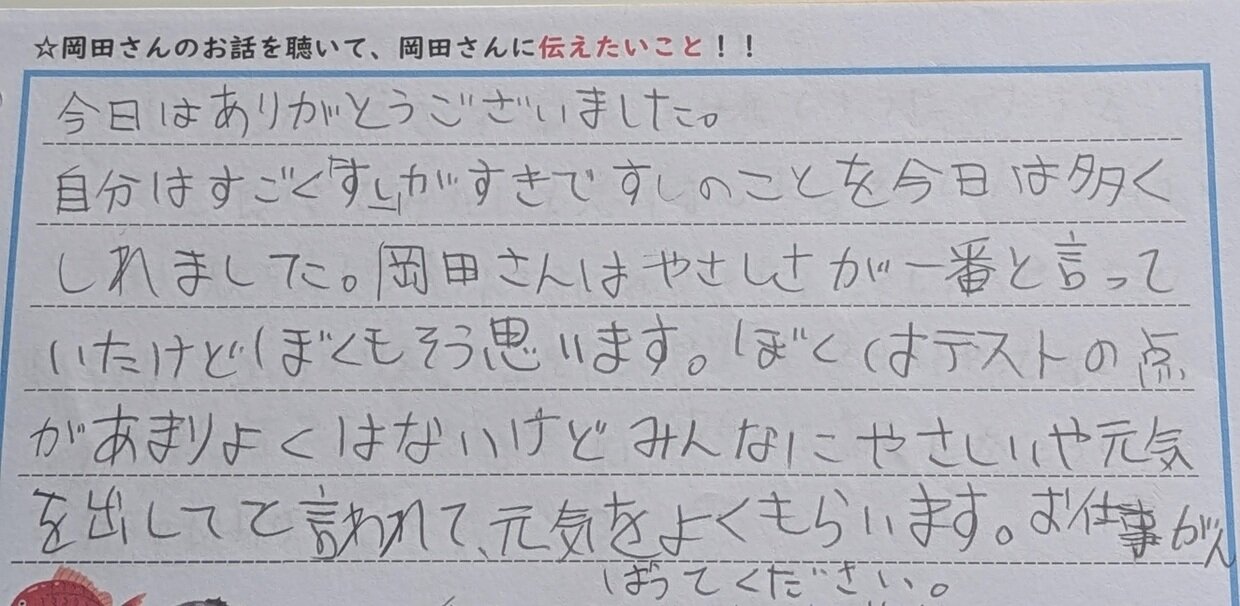 ☆岡田さんのお話を聴いて、岡田さんに伝えたいこと！！
今日はありがとうございました。
自分はすごく「すし」がすきですしのことを今日は多く
しれました。岡田さんはやさしさが一番と言って
いたけどぼくもそう思います。ぼくはテストの点
があまりよくはないけどみんなにやさしいや元気
を出してと言われて、元気をよくもらいます。お仕事がん
ばってください。